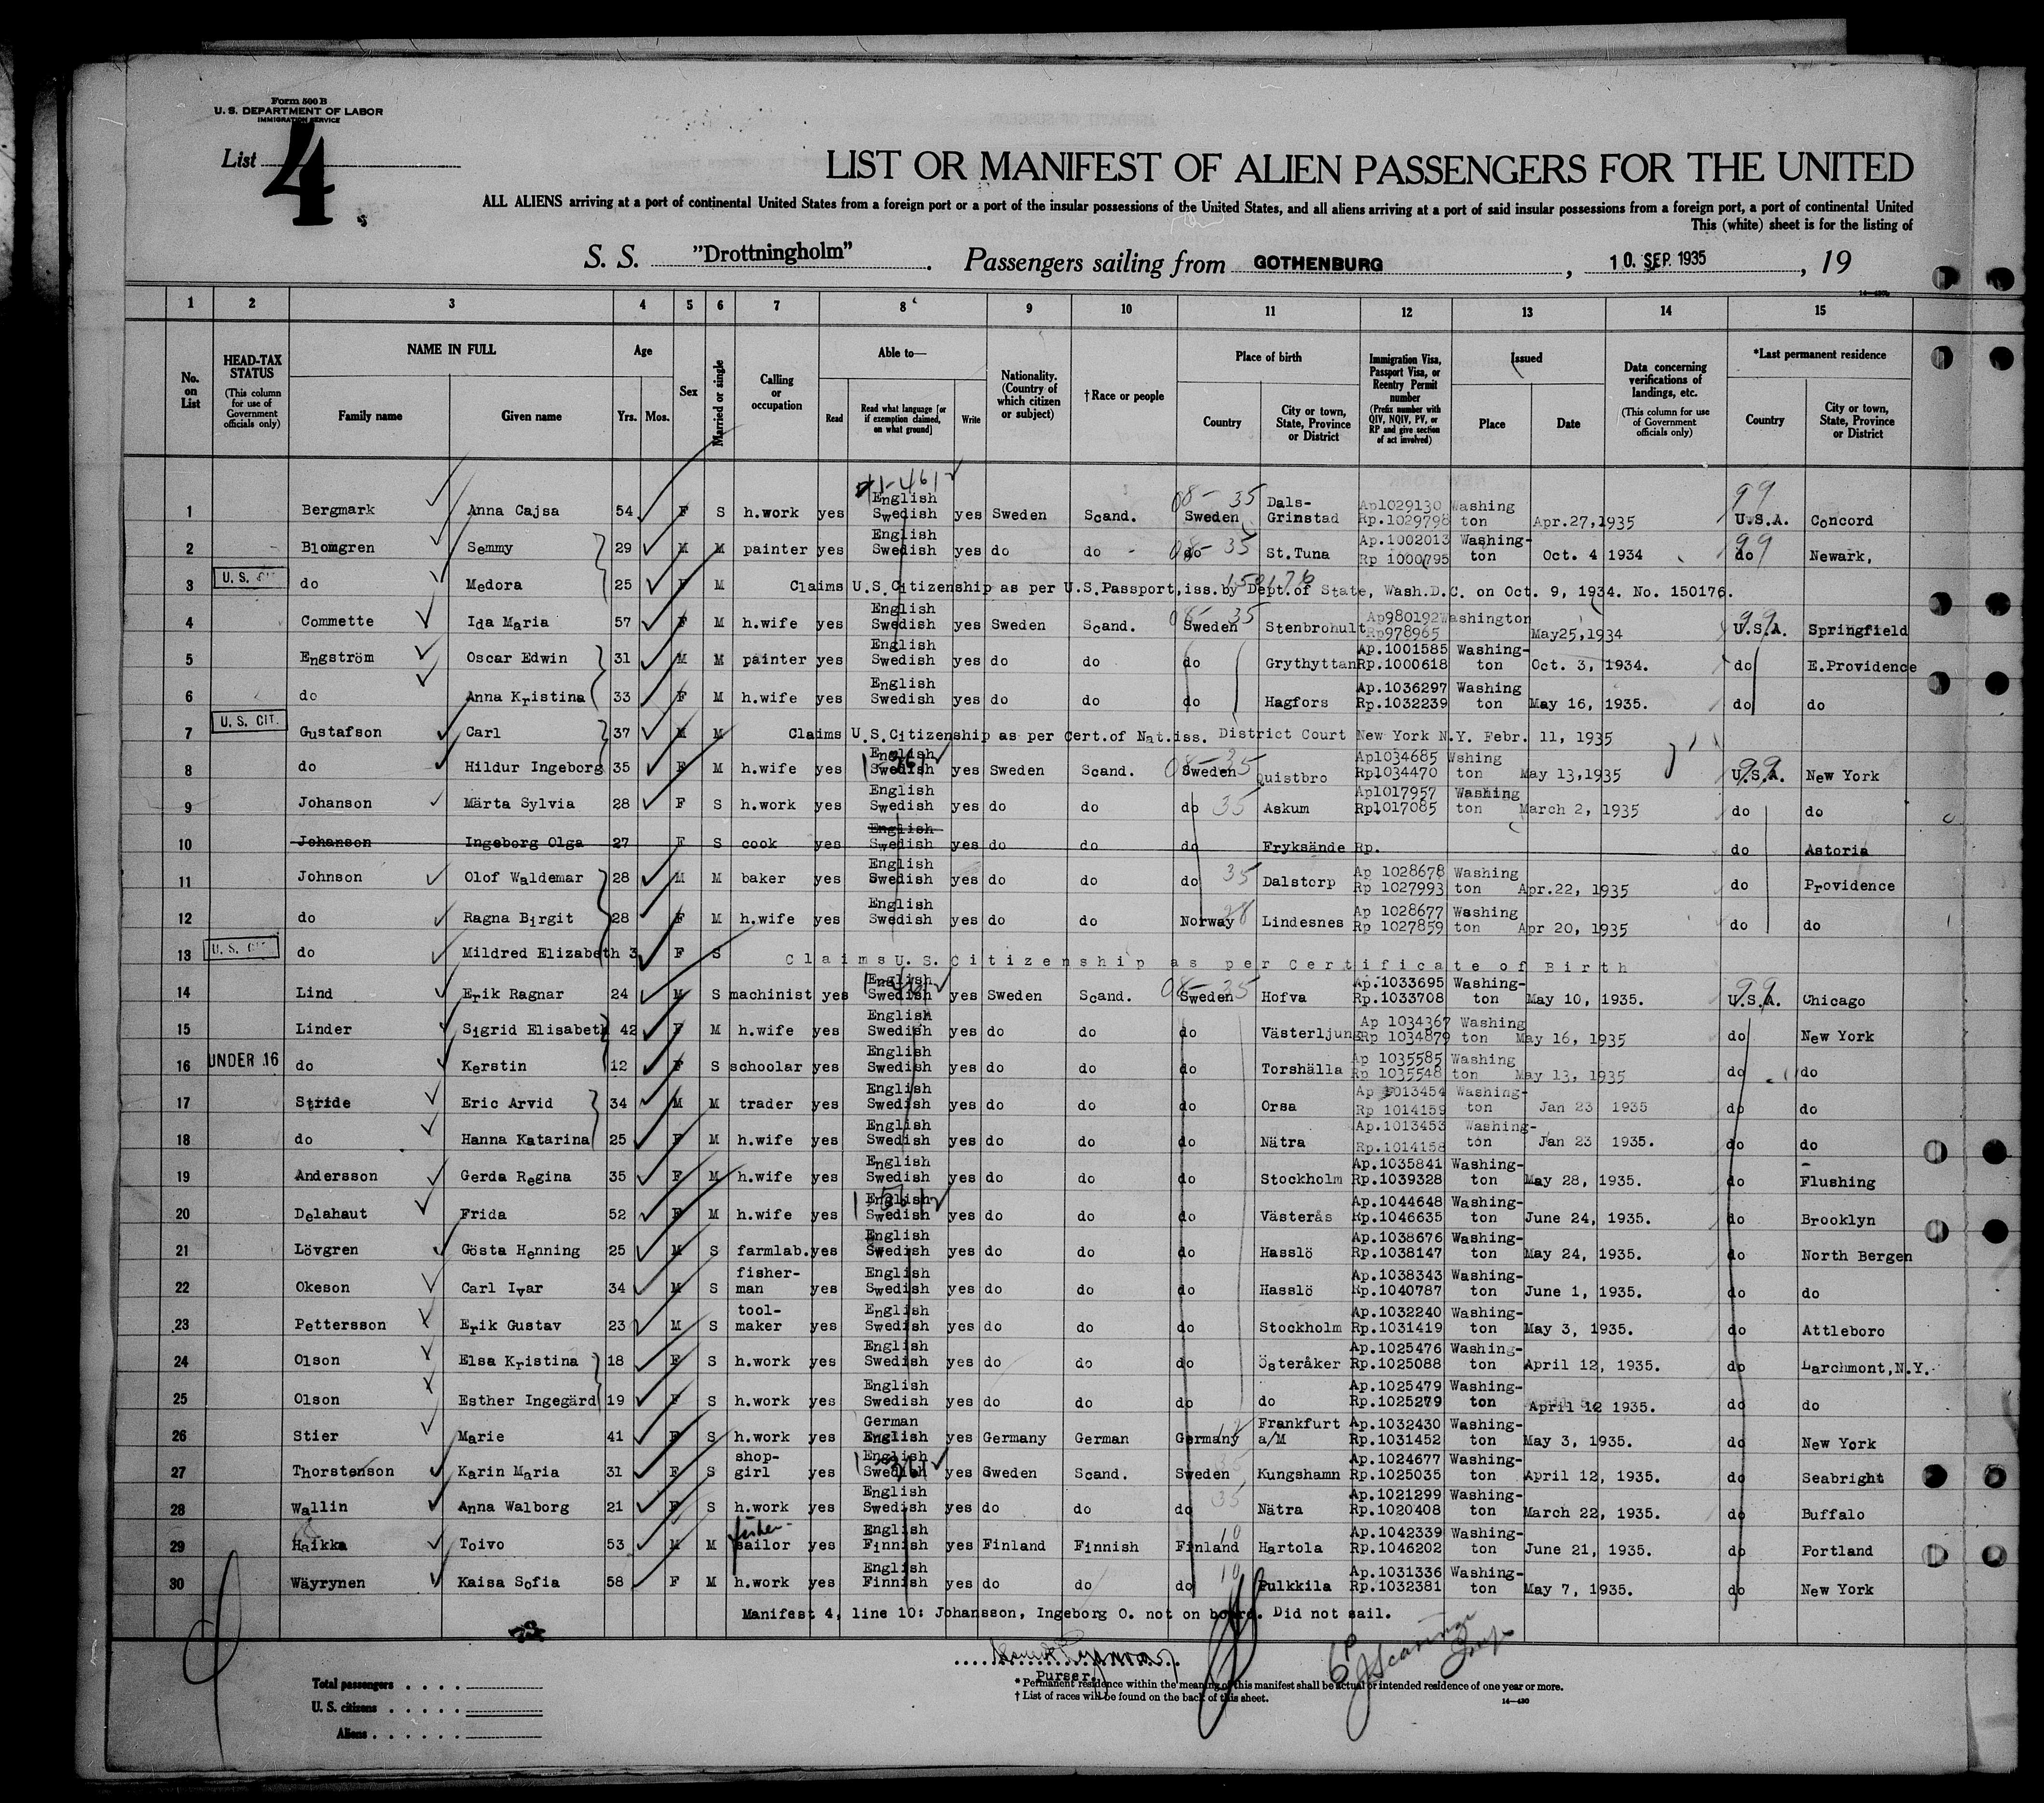 Form 500 B
U. S. DEPARTMENT OF LABOR
IMMIGRATION SERVICE
List 4
LIST OR MANIFEST OF ALIEN PASSENGERS FOR THE UNITED
ALL ALIENS arriving at a port of continental United States from a foreign port or a port of the insular possessions of the United States, and all aliens arriving at a port of said insular possessions from a foreign port, a port of continental United
This (white) sheet is for the listing of
S. S. "Drottningholm". Passengers sailing from GOTHENBURG, 10. SEP. 1935, 19
1 2 3 4 5 6 7 8 9 10 11 12 13 14 15
No. on List
HEAD-TAX STATUS (This column for use of Government officials only)
NAME IN FULL Family name Given name
Age Yrs. Mos.
Sex
Married or single
Calling or occupation
Able to— Read Read what language [or if exemption claimed, on what ground] Write
Nationality. (Country of which citizen or subject)
†Race or people
Place of birth Country City or town, State, Province or District
Immigration Visa, Passport Visa, or Reentry Permit number (Prefix number with QIV, NQIV, PV, or RP and give section of act involved)
Issued Place Date
Data concerning verifications of landings, etc. (This column for use of Government officials only)
*Last permanent residence Country City or town, State, Province or District
1 Bergmark Anna Cajsa 54 F S h.work yes English Swedish yes Sweden Scand. 08-35 Sweden Dals-Grinstad Ap1029130 Rp.1029798 Washington Apr.27,1935 99 U.S.A. Concord
2 Blomgren Semmy 29 M M painter yes English Swedish yes do do do St.Tuna Ap.1002013 Rp 1000795 Washing-ton Oct. 4 1934 do Newark,
3 U. S. CIT. do Medora 25 F M Claims U.S.Citizenship as per U.S.Passport,iss.by Dept.of State, Wash.D.C. on Oct. 9, 1934. No. 150176.
4 Commette Ida Maria 57 F M h.wife yes English Swedish yes Sweden Scand. 08-35 Sweden Stenbrohult Ap980192 Rp978965 Washington May25,1934 99 U.S.A. Springfield
5 Engström Oscar Edwin 31 M M painter yes English Swedish yes do do do Grythyttan Ap.1001585 Rp.1000618 Washing-ton Oct. 3, 1934. do E.Providence
6 do Anna Kristina 33 F M h.wife yes English Swedish yes do do do Hagfors Ap.1036297 Rp.1032239 Washington May 16, 1935. do do
7 U. S. CIT. Gustafson Carl 37 M M Claims U.S.Citizenship as per Cert.of Nat.iss. District Court New York N.Y. Febr. 11, 1935
8 do Hildur Ingeborg 35 F M h.wife yes English Swedish yes Sweden Scand. 08-35 Sweden Quistbro Ap1034685 Rp1034470 Wshington May 13,1935 99 U.S.A. New York
9 Johanson Märta Sylvia 28 F S h.work yes English Swedish yes do do do 35 Askum Ap1017957 Rp1017085 Washington March 2, 1935 do do
10 Johanson Ingeborg Olga 27 F S cook yes English Swedish yes do do do Fryksände Rp. do Astoria
11 Johnson Olof Waldemar 28 M M baker yes English Swedish yes do do do 35 Dalstorp Ap 1028678 Rp 1027993 Washington Apr.22, 1935 do Providence
12 do Ragna Birgit 28 F M h.wife yes English Swedish yes do do Norway 28 Lindesnes Ap 1028677 Rp 1027859 Washington Apr 20, 1935 do do
13 U. S. CIT. do Mildred Elizabeth 3 F S Claims U.S.Citizenship as per Certificate of Birth
14 Lind Erik Ragnar 24 M S machinist yes English Swedish yes Sweden Scand. 08-35 Sweden Hofva Ap.1033695 Rp.1033708 Washing-ton May 10, 1935. 99 U.S.A. Chicago
15 Linder Sigrid Elisabeth 42 F M h.wife yes English Swedish yes do do do Västerljung Ap 1034367 Rp 1034879 Washington May 16, 1935 do New York
16 UNDER 16 do Kerstin 12 F S schoolar yes English Swedish yes do do do Torshälla Ap 1035585 Rp 1035548 Washington May 13, 1935 do do
17 Stride Eric Arvid 34 M M trader yes English Swedish yes do do do Orsa Ap 1013454 Rp 1014159 Washing-ton Jan 23 1935 do do
18 do Hanna Katarina 25 F M h.wife yes English Swedish yes do do do Nätra Ap.1013453 Rp.1014158 Washing-ton Jan 23 1935. do do
19 Andersson Gerda Regina 35 F M h.wife yes English Swedish yes do do do Stockholm Ap.1035841 Rp.1039328 Washing-ton May 28, 1935. do Flushing
20 Delahaut Frida 52 F M h.wife yes English Swedish yes do do do Västerås Ap.1044648 Rp.1046635 Washing-ton June 24, 1935. do Brooklyn
21 Lövgren Gösta Henning 25 M S farmlab. yes English Swedish yes do do do Hasslö Ap.1038676 Rp.1038147 Washing-ton May 24, 1935. do North Bergen
22 Okeson Carl Ivar 34 M S fisher-man yes English Swedish yes do do do Hasslö Ap.1038343 Rp.1040787 Washing-ton June 1, 1935. do do
23 Pettersson Erik Gustav 23 M S tool-maker yes English Swedish yes do do do Stockholm Ap.1032240 Rp.1031419 Washing-ton May 3, 1935. do Attleboro
24 Olson Elsa Kristina 18 F S h.work yes English Swedish yes do do do Österåker Ap.1025476 Rp.1025088 Washing-ton April 12, 1935. do Larchmont,N.Y.
25 Olson Esther Ingegärd 19 F S h.work yes English Swedish yes do do do do Ap.1025479 Rp.1025279 Washing-ton April 12 1935. do do
26 Stier Marie 41 F S h.work yes German English yes Germany German Germany Frankfurt a/M Ap.1032430 Rp.1031452 Washing-ton May 3, 1935. do New York
27 Thorstenson Karin Maria 31 F S shop-girl yes English Swedish yes Sweden Scand. Sweden Kungshamn Ap.1024677 Rp.1025035 Washing-ton April 12, 1935. do Seabright
28 Wallin Anna Walborg 21 F S h.work yes English Swedish yes do do do 35 Nätra Ap.1021299 Rp.1020408 Washing-ton March 22, 1935. do Buffalo
29 Haikka Toivo 53 M M fisher- sailor yes English Finnish yes Finland Finnish Finland 10 Hartola Ap.1042339 Rp.1046202 Washing-ton June 21, 1935. do Portland
30 Wäyrynen Kaisa Sofia 58 F M h.work yes English Finnish yes do do do 10 Pulkkila Ap.1031336 Rp.1032381 Washing-ton May 7, 1935. do New York
Manifest 4, line 10: Johansson, Ingeborg O. not on board. Did not sail.
Purser.
Total passengers
U. S. citizens
Aliens
* Permanent residence within the meaning of this manifest shall be actual or intended residence of one year or more.
† List of races will be found on the back of this sheet.
14—430